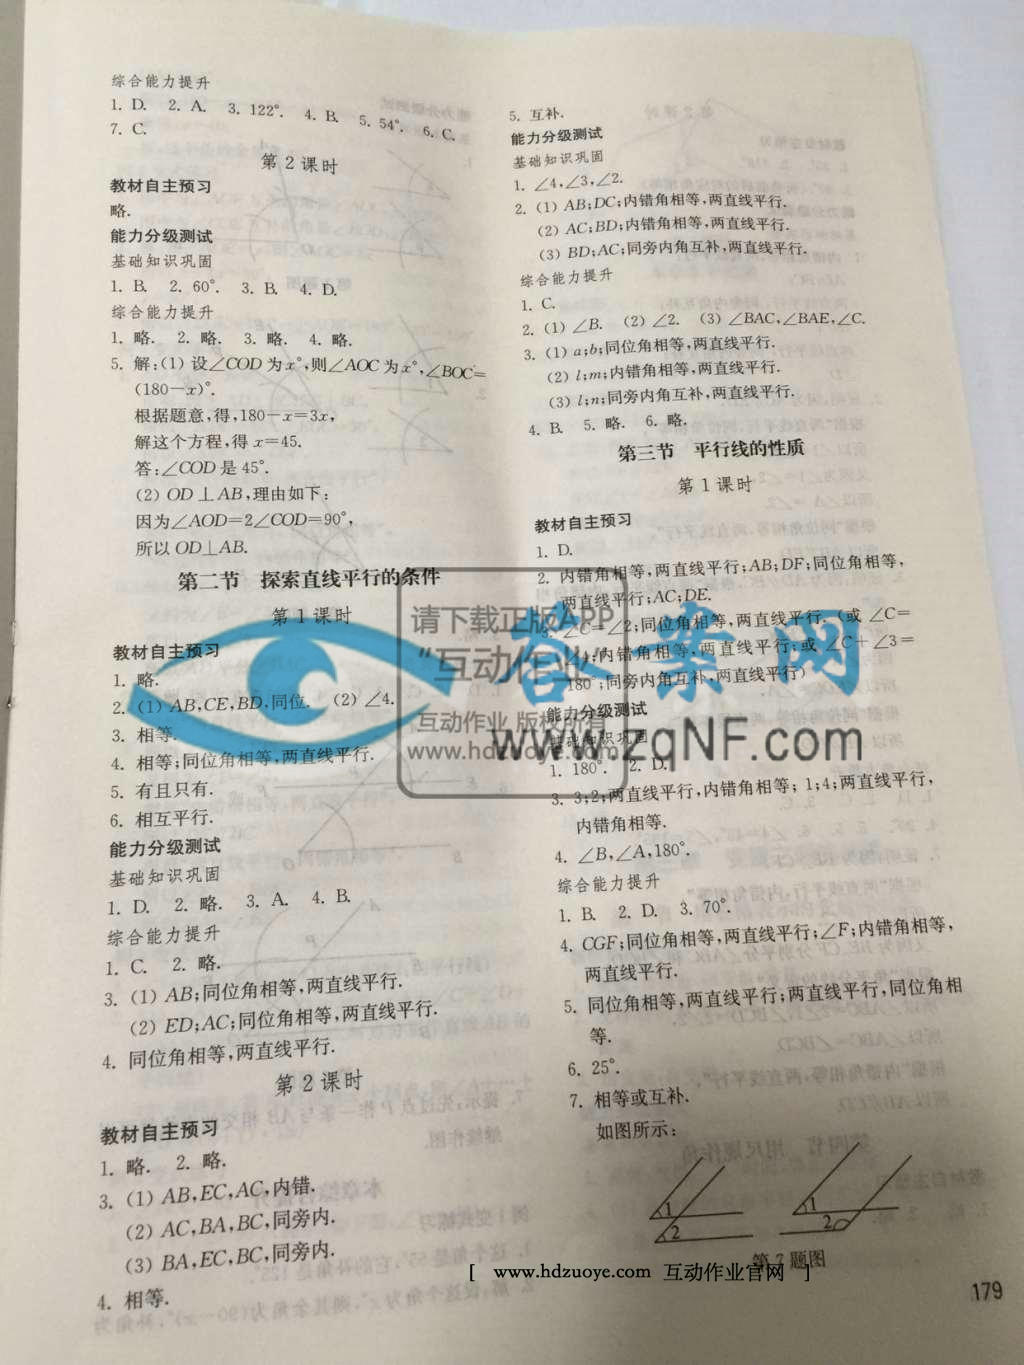 综合能力提升
1. D. 2. A. 3. 122°. 4. B. 5. 54°. 6. C.
7. C.
第2课时
教材自主预习
略.
能力分级测试
基础知识巩固
1. B. 2. 60°. 3. B. 4. D.
综合能力提升
1. 略. 2. 略. 3. 略. 4. 略.
5. 解:(1) 设∠COD为x°,则∠AOC为x°,∠BOC=
(180-x)°.
根据题意,得,180-x=3x,
解这个方程,得 x=45.
答:∠COD是45°.
(2) OD⊥AB,理由如下:
因为∠AOD=2∠COD=90°,
所以OD⊥AB.
第二节 探索直线平行的条件
第1课时
教材自主预习
1. 略.
2. (1) AB,CE,BD,同位. (2) ∠4.
3. 相等.
4. 相等;同位角相等,两直线平行.
5. 有且只有.
6. 相互平行.
能力分级测试
基础知识巩固
1. D. 2. 略. 3. A. 4. B.
综合能力提升
1. C. 2. 略.
3. (1) AB;同位角相等,两直线平行.
(2) ED;AC;同位角相等,两直线平行.
4. 同位角相等,两直线平行.
第2课时
教材自主预习
1. 略. 2. 略.
3. (1) AB,EC,AC,内错.
(2) AC,BA,BC,同旁内.
(3) BA,EC,BC,同旁内.
4. 相等.
5. 互补.
能力分级测试
基础知识巩固
1. ∠4,∠3,∠2.
2. (1) AB;DC;内错角相等,两直线平行.
(2) AC;BD;内错角相等,两直线平行.
(3) BD;AC;同旁内角互补,两直线平行.
综合能力提升
1. C.
2. (1) ∠B. (2) ∠2. (3) ∠BAC,∠BAE,∠C.
3. (1) a;b;同位角相等,两直线平行.
(2) l;m;内错角相等,两直线平行.
(3) l;n;同旁内角互补,两直线平行.
4. B. 5. 略. 6. 略.
第三节 平行线的性质
第1课时
教材自主预习
1. D.
2. 内错角相等,两直线平行;AB;DF;同位角相等,
两直线平行;AC;DE.
3. ∠C=∠2;同位角相等,两直线平行.(或 ∠C=
∠4;内错角相等,两直线平行;或 ∠C+∠3=
180°;同旁内角互补,两直线平行)
能力分级测试
基础知识巩固
1. 180°. 2. D.
3. 3;2;两直线平行,内错角相等; 1;4;两直线平行,
内错角相等.
4. ∠B,∠A,180°.
综合能力提升
1. B. 2. D. 3. 70°.
4. CGF;同位角相等,两直线平行;∠F;内错角相等,
两直线平行.
5. 同位角相等,两直线平行;两直线平行,同位角相
等.
6. 25°.
7. 相等或互补.
如图所示:
1
2
1
2
第7题图
179
请下载正版APP
“互动作业”
互动作业 版权所有
www.hdzuoye.com
www.zqNF.com
[ www.hdzuoye.com 互动作业官网 ]